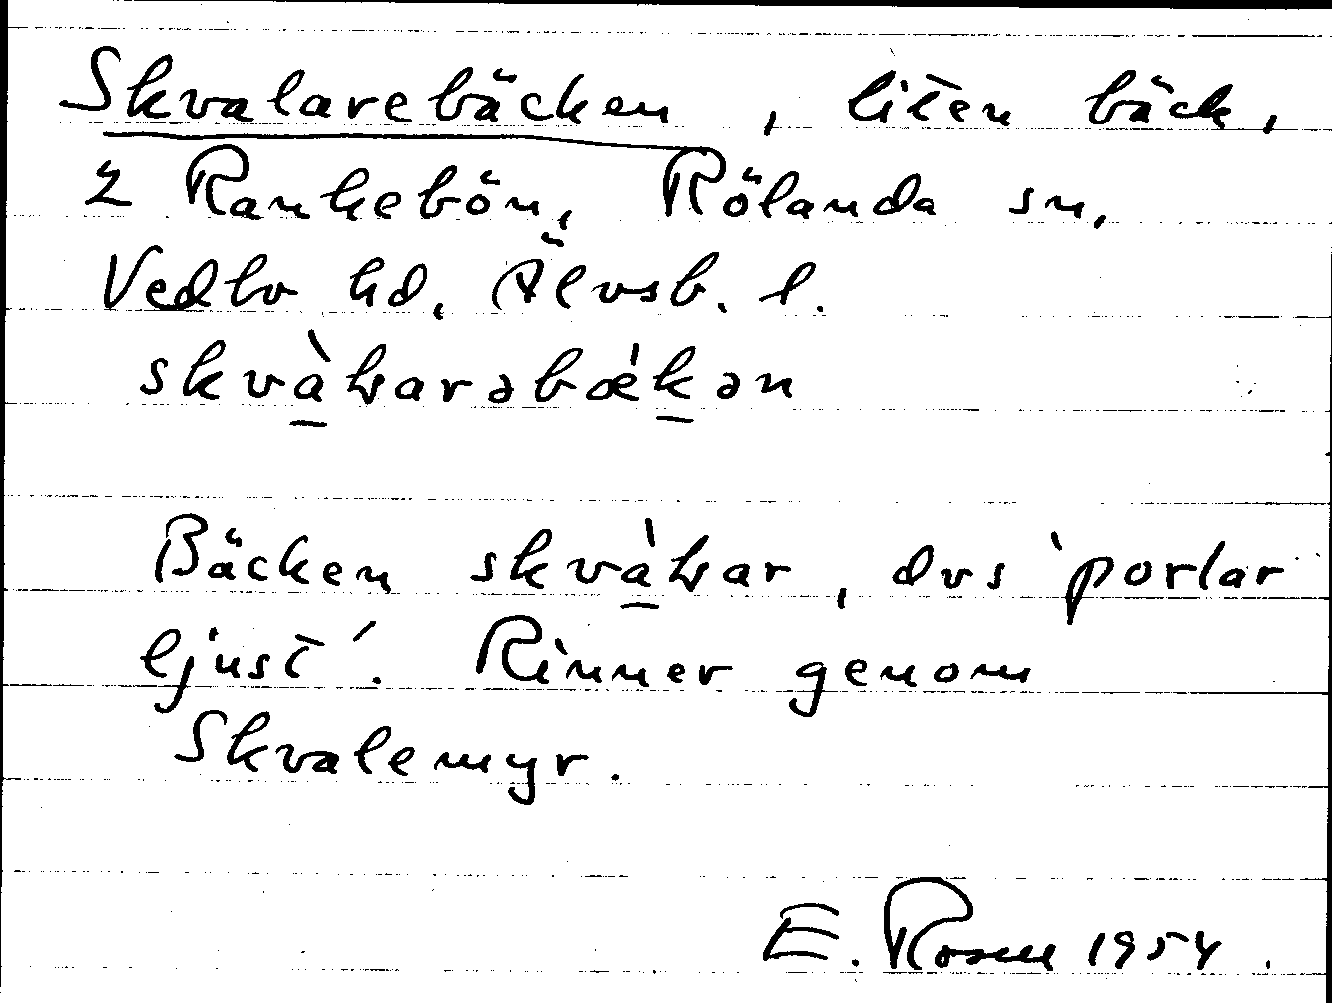 Skvalarebäcken, liten bäck,
2 Rankebön, Rölanda sn,
Vedbo hd, Älvsb. l.
skvàlarəbǽkən
Bäcken skvàlar, dvs 'porlar
ljust'. Rinner genom
Skvalemyr.
E. Rosell 1954.